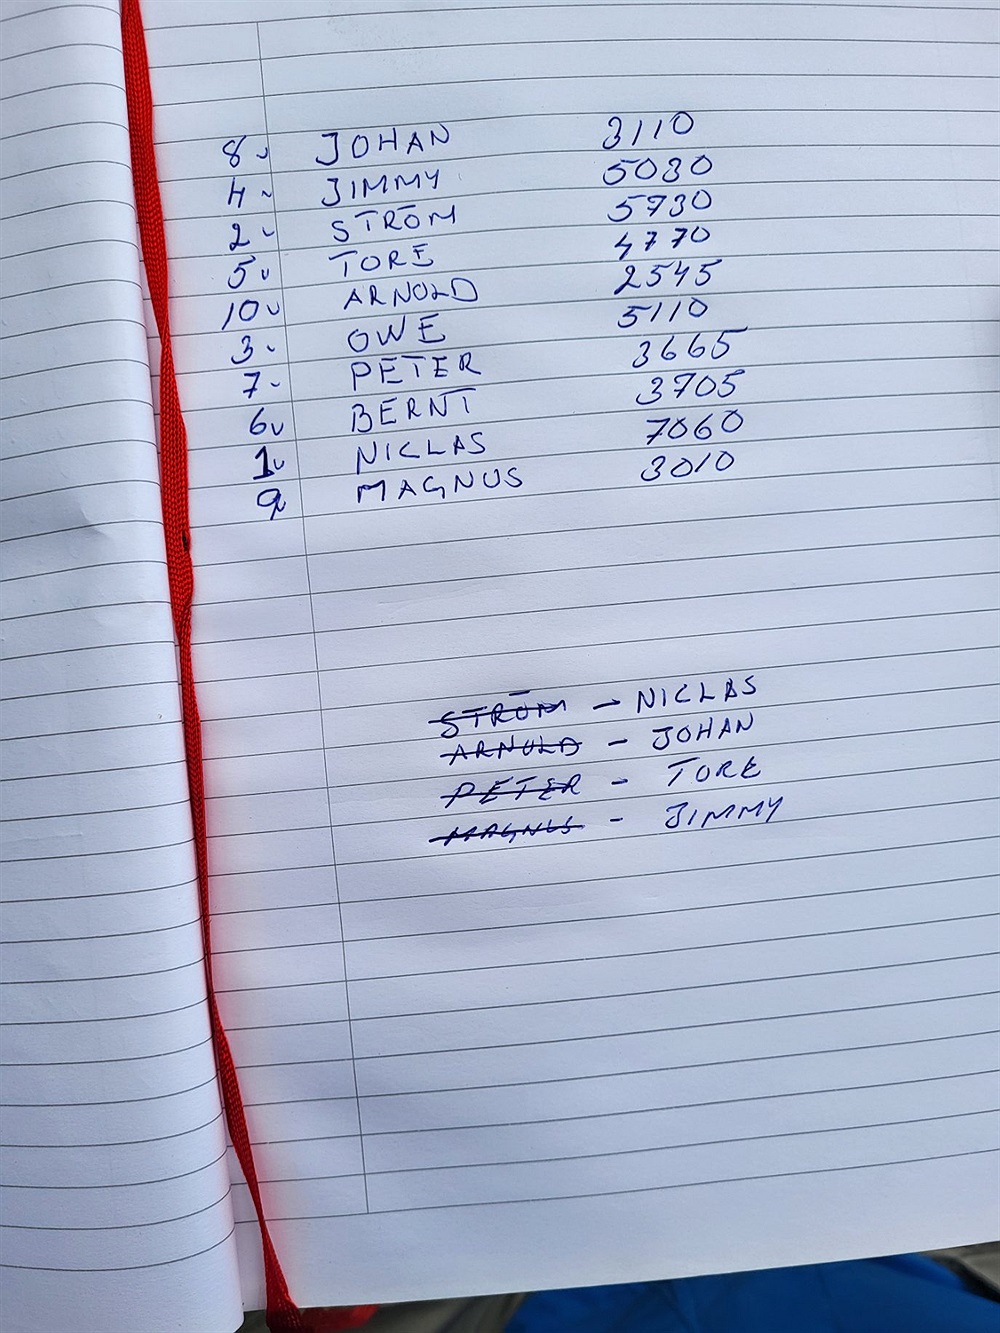 8 JOHAN 3110
4 JIMMY 5030
2 STRÖM 5730
5 TORE 4770
10 ARNOLD 2545
3 OWE 5110
7 PETER 3665
6 BERNT 3705
1 NICLAS 7060
9 MAGNUS 3010
STRÖM - NICLAS
ARNOLD - JOHAN
PETER - TORE
MAGNUS - JIMMY